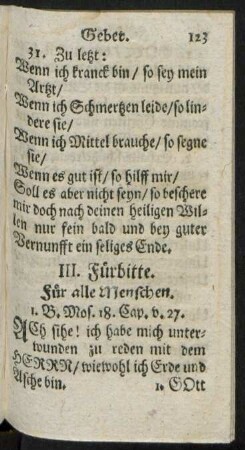 Gebet. 123
31. Zu letzt:
Wenn ich kranck bin / so sey mein
Artzt /
Wenn ich Schmertzen leide / so lin-
dere sie /
Wenn ich Mittel brauche / so segne
sie /
Wenn es gut ist / so hilff mir /
Soll es aber nicht seyn / so beschere
mir doch nach deinen heiligen Wil-
len nur fein bald und bey guter
Vernunfft ein seliges Ende.
III. Fürbitte.
Für alle Menschen.
1. B. Mos. 18. Cap. v. 27.
ACh sihe! ich habe mich unter-
wunden zu reden mit dem
HERRN / wiewohl ich Erde und
Asche bin. 1. GOtt